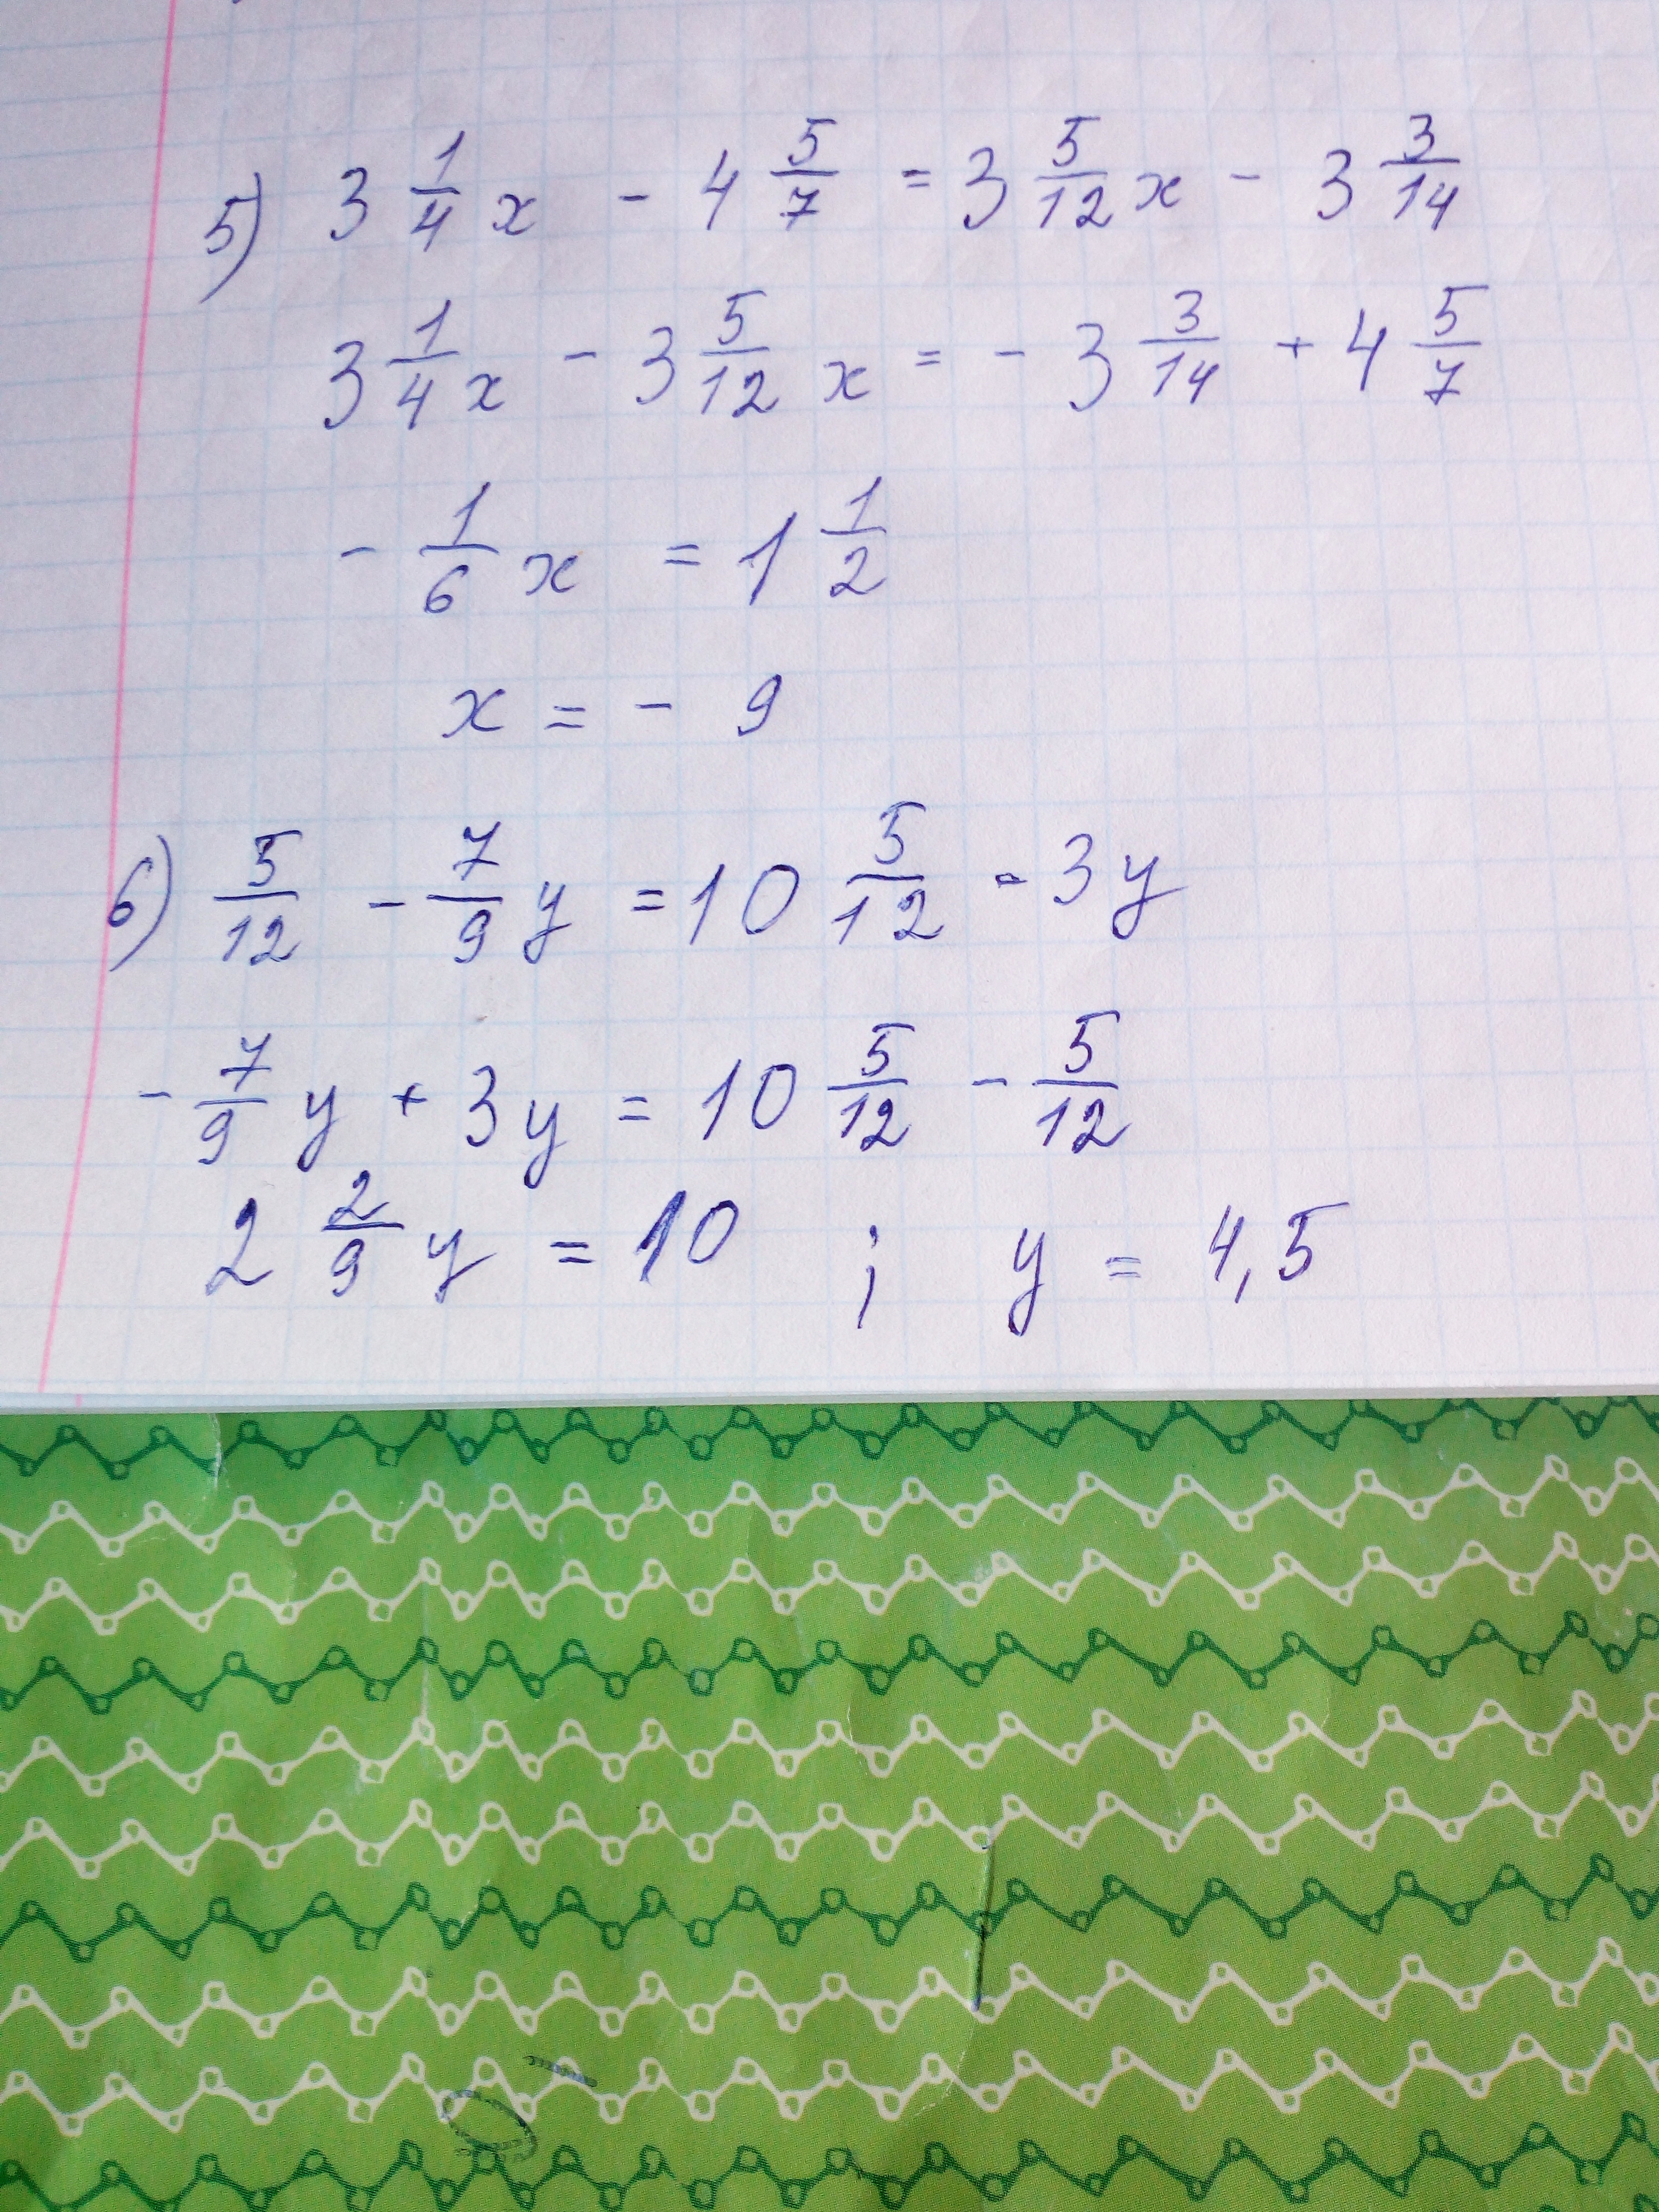 5) 3 1/4 x - 4 5/7 = 3 5/12 x - 3 3/14
3 1/4 x - 3 5/12 x = - 3 3/14 + 4 5/7
- 1/6 x = 1 1/2
x = - 9
6) 5/12 - 7/9 y = 10 5/12 - 3y
- 7/9 y + 3y = 10 5/12 - 5/12
2 2/9 y = 10 ; y = 4,5